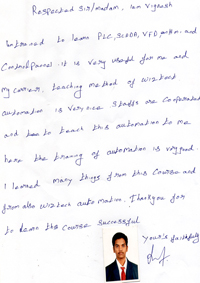 Respected Sir/madam, Iam Vignesh
Intrested to learn PLC, SCADA, VFD and
Control Pannel. it is very useful for me and
my carrier. teaching method of Wiztech
automation is very nice staffs are Co-operated
and to teach this automation to me
here the traning of automation is very good.
I learned many things from this Course and
from also Wiztech automation. Thankyou for
to learn the course successful
your's faithfully